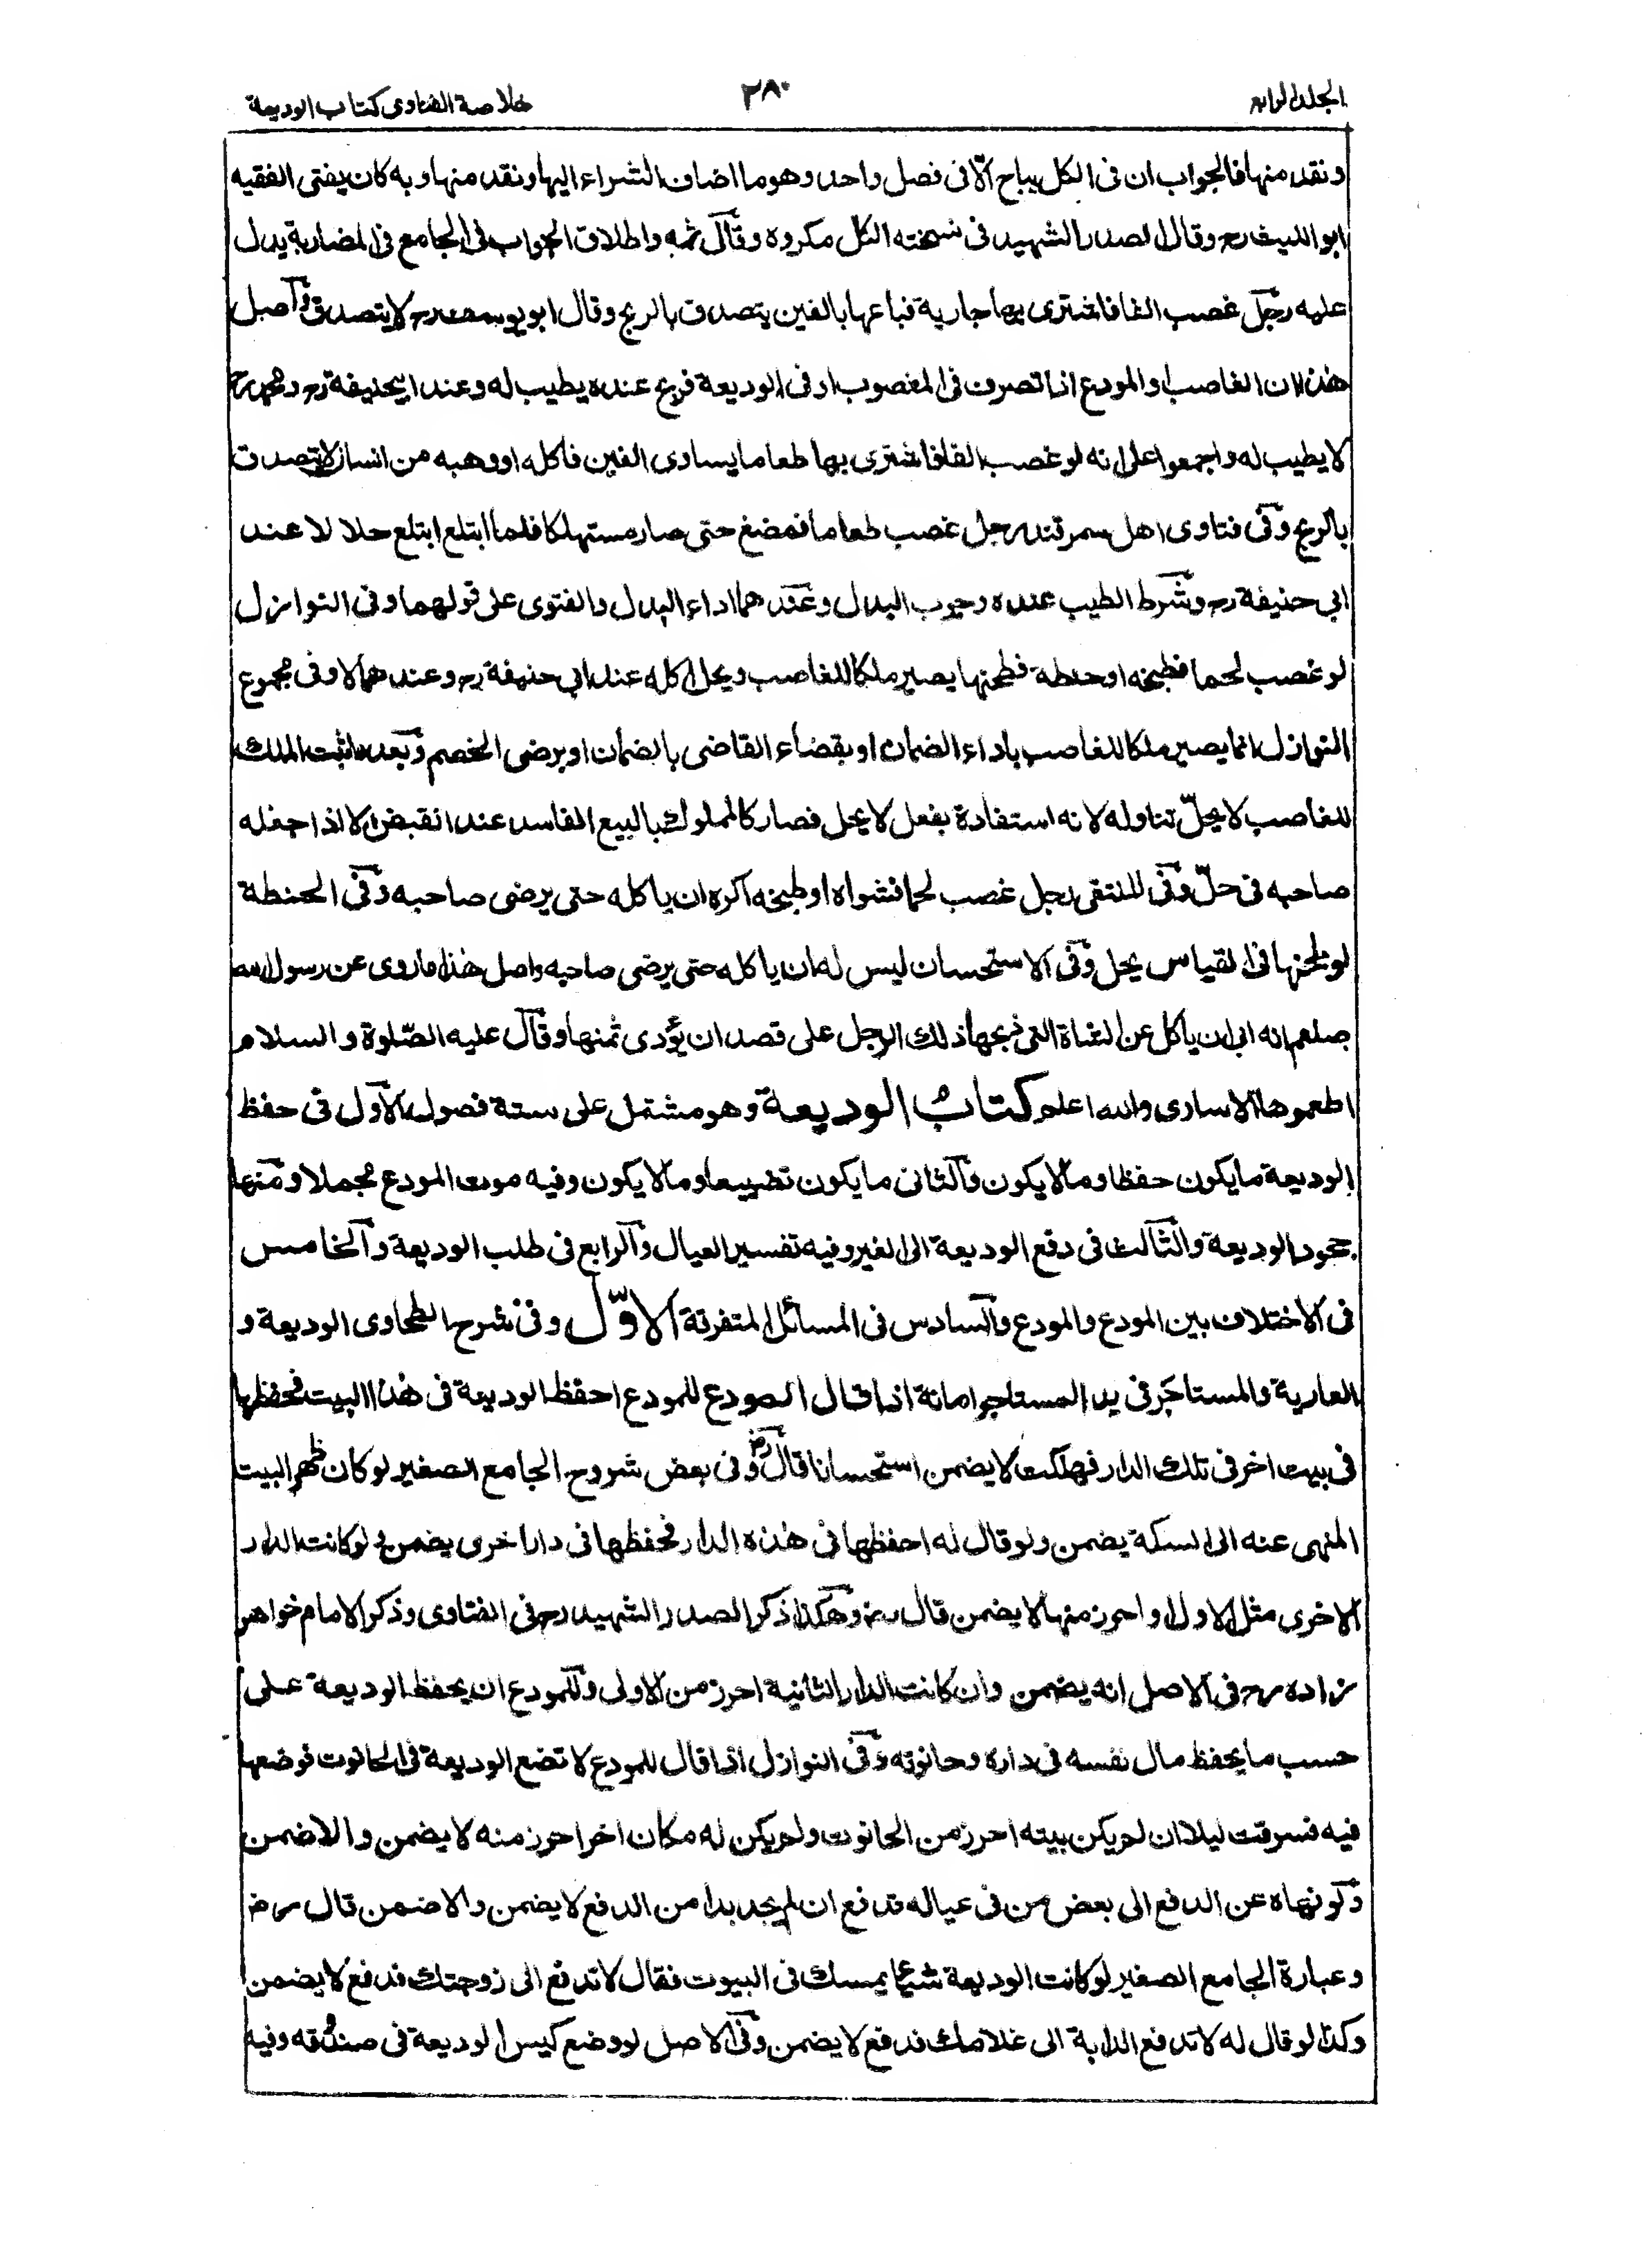 الجلد الرابع
٢٨٠
خلاصة الفتاوى كتاب الوديعة
ونقد منها فالجواب ان فى الكل يباح الّا فى فصل واحد وهو ما اضاف الشراء اليها ونقد منها وبه كان يفتى الفقيه
ابو الليث رح وقال الصدر الشهيد فى نسخته الكل مكروه وقال ثمه واطلاق الجواب فى الجامع فى المضاربة يدل
عليه رجل غصب الفا فاشترى بها جارية فباعها بالفين يتصدق بالربح وقال ابو يوسف رح لا يتصدق واصل
هذا ان الغاصب او المودع اذا تصرف فى المغصوب او فى الوديعة فربح عنده يطيب له وعند ابيحنيفة رح ومحمد رح
لا يطيب له واجمعوا على انه لو غصب الفا فاشترى بها طعاما يساوى الفين فاكله او وهبه من انسان لا يتصدق
بالربح وفى فتاوى اهل سمرقند رجل غصب طعاما فمضغ حتى صار مستهلكا فلما ابتلع ابتلع حلالا عند
ابي حنيفة رح وشرط الطيب عنده وجوب البدل وعندهما اداء البدل والفتوى على قولهما وفى النوازل
لو غصب لحما فطبخه او حنطة فطحنها يصير ملكا للغاصب ويحل اكله عند ابي حنيفة رح وعندهما لا وفى مجموع
النوازل انما يصير ملكا للغاصب باداء الضمان او بقضاء القاضى بالضمان او برضى الخصم وبعد ما ثبت الملك
للغاصب لا يحلّ تناوله لانه استفادة بفعل لا يحل فصار كالمملوك بالبيع الفاسد عند القبض الا اذا جعله
صاحبه فى حلّ وفى المنتقى رجل غصب لحما فشواه او طبخه اكره ان ياكله حتى يرضى صاحبه وفى الحنطة
لو طحنها فى القياس يحل وفى الاستحسان ليس له ان ياكله حتى يرضى صاحبه واصل هذا ما روى عن رسول الله
صلعم انه ابى ان ياكل عن الشاة التى ذبحها ذلك الرجل على قصد ان يؤدى ثمنها وقال عليه الصّلوة والسلام
اطعموها الاسارى والله اعلم كتاب الوديعة وهو مشتمل على ستة فصول الاول فى حفظ
الوديعة ما يكون حفظا وما لا يكون والثانى ما يكون تضييعا وما لا يكون وفيه موت المودع مجملا ومنها
جحود الوديعة والثالث فى دفع الوديعة الى الغير وفيه تفسير العيال والرابع فى طلب الوديعة والخامس
فى الاختلاف بين المودع والمودع والسادس فى المسائل المتفرقة الاوّل وفى شرح الطحاوى الوديعة و
العارية والمستاجر فى يد المستاجر امانة اذا قال المودع للمودع احفظ الوديعة فى هذا البيت فحفظها
فى بيت اخر فى تلك الدار فهلكت لا يضمن استحسانا قال رض وفى بعض شروح الجامع الصغير لو كان ظهر البيت
المنهى عنه الى السكة يضمن ولو قال له احفظها فى هذه الدار فحفظها فى دار اخرى يضمن ولو كانت الدار
الاخرى مثل الاول او احرز منها لا يضمن قال رض وهكذا ذكر الصدر الشهيد رح فى الفتاوى وذكر الامام خواهر
زاده رح فى الاصل انه يضمن وان كانت الدار الثانية احرز من الاولى وللمودع ان يحفظ الوديعة على
حسب ما يحفظ مال نفسه فى داره وحانوته وفى النوازل اذا قال للمودع لا تضع الوديعة فى الحانوت فوضعها
فيه فسرقت ليلا ان لم يكن بيته احرز من الحانوت ولم يكن له مكان اخر احرز منه لا يضمن والا ضمن
ولو نهاه عن الدفع الى بعض من فى عياله فدفع ان لم يجد بدا من الدفع لا يضمن والا ضمن قال رض
وعبارة الجامع الصغير لو كانت الوديعة شيئا يمسك فى البيوت فقال لا تدفع الى زوجتك فدفع لا يضمن
وكذا لو قال له لا تدفع الدابة الى غلامك فدفع لا يضمن وفى الاصل لو وضع كيس الوديعة فى صندوقه وفيه